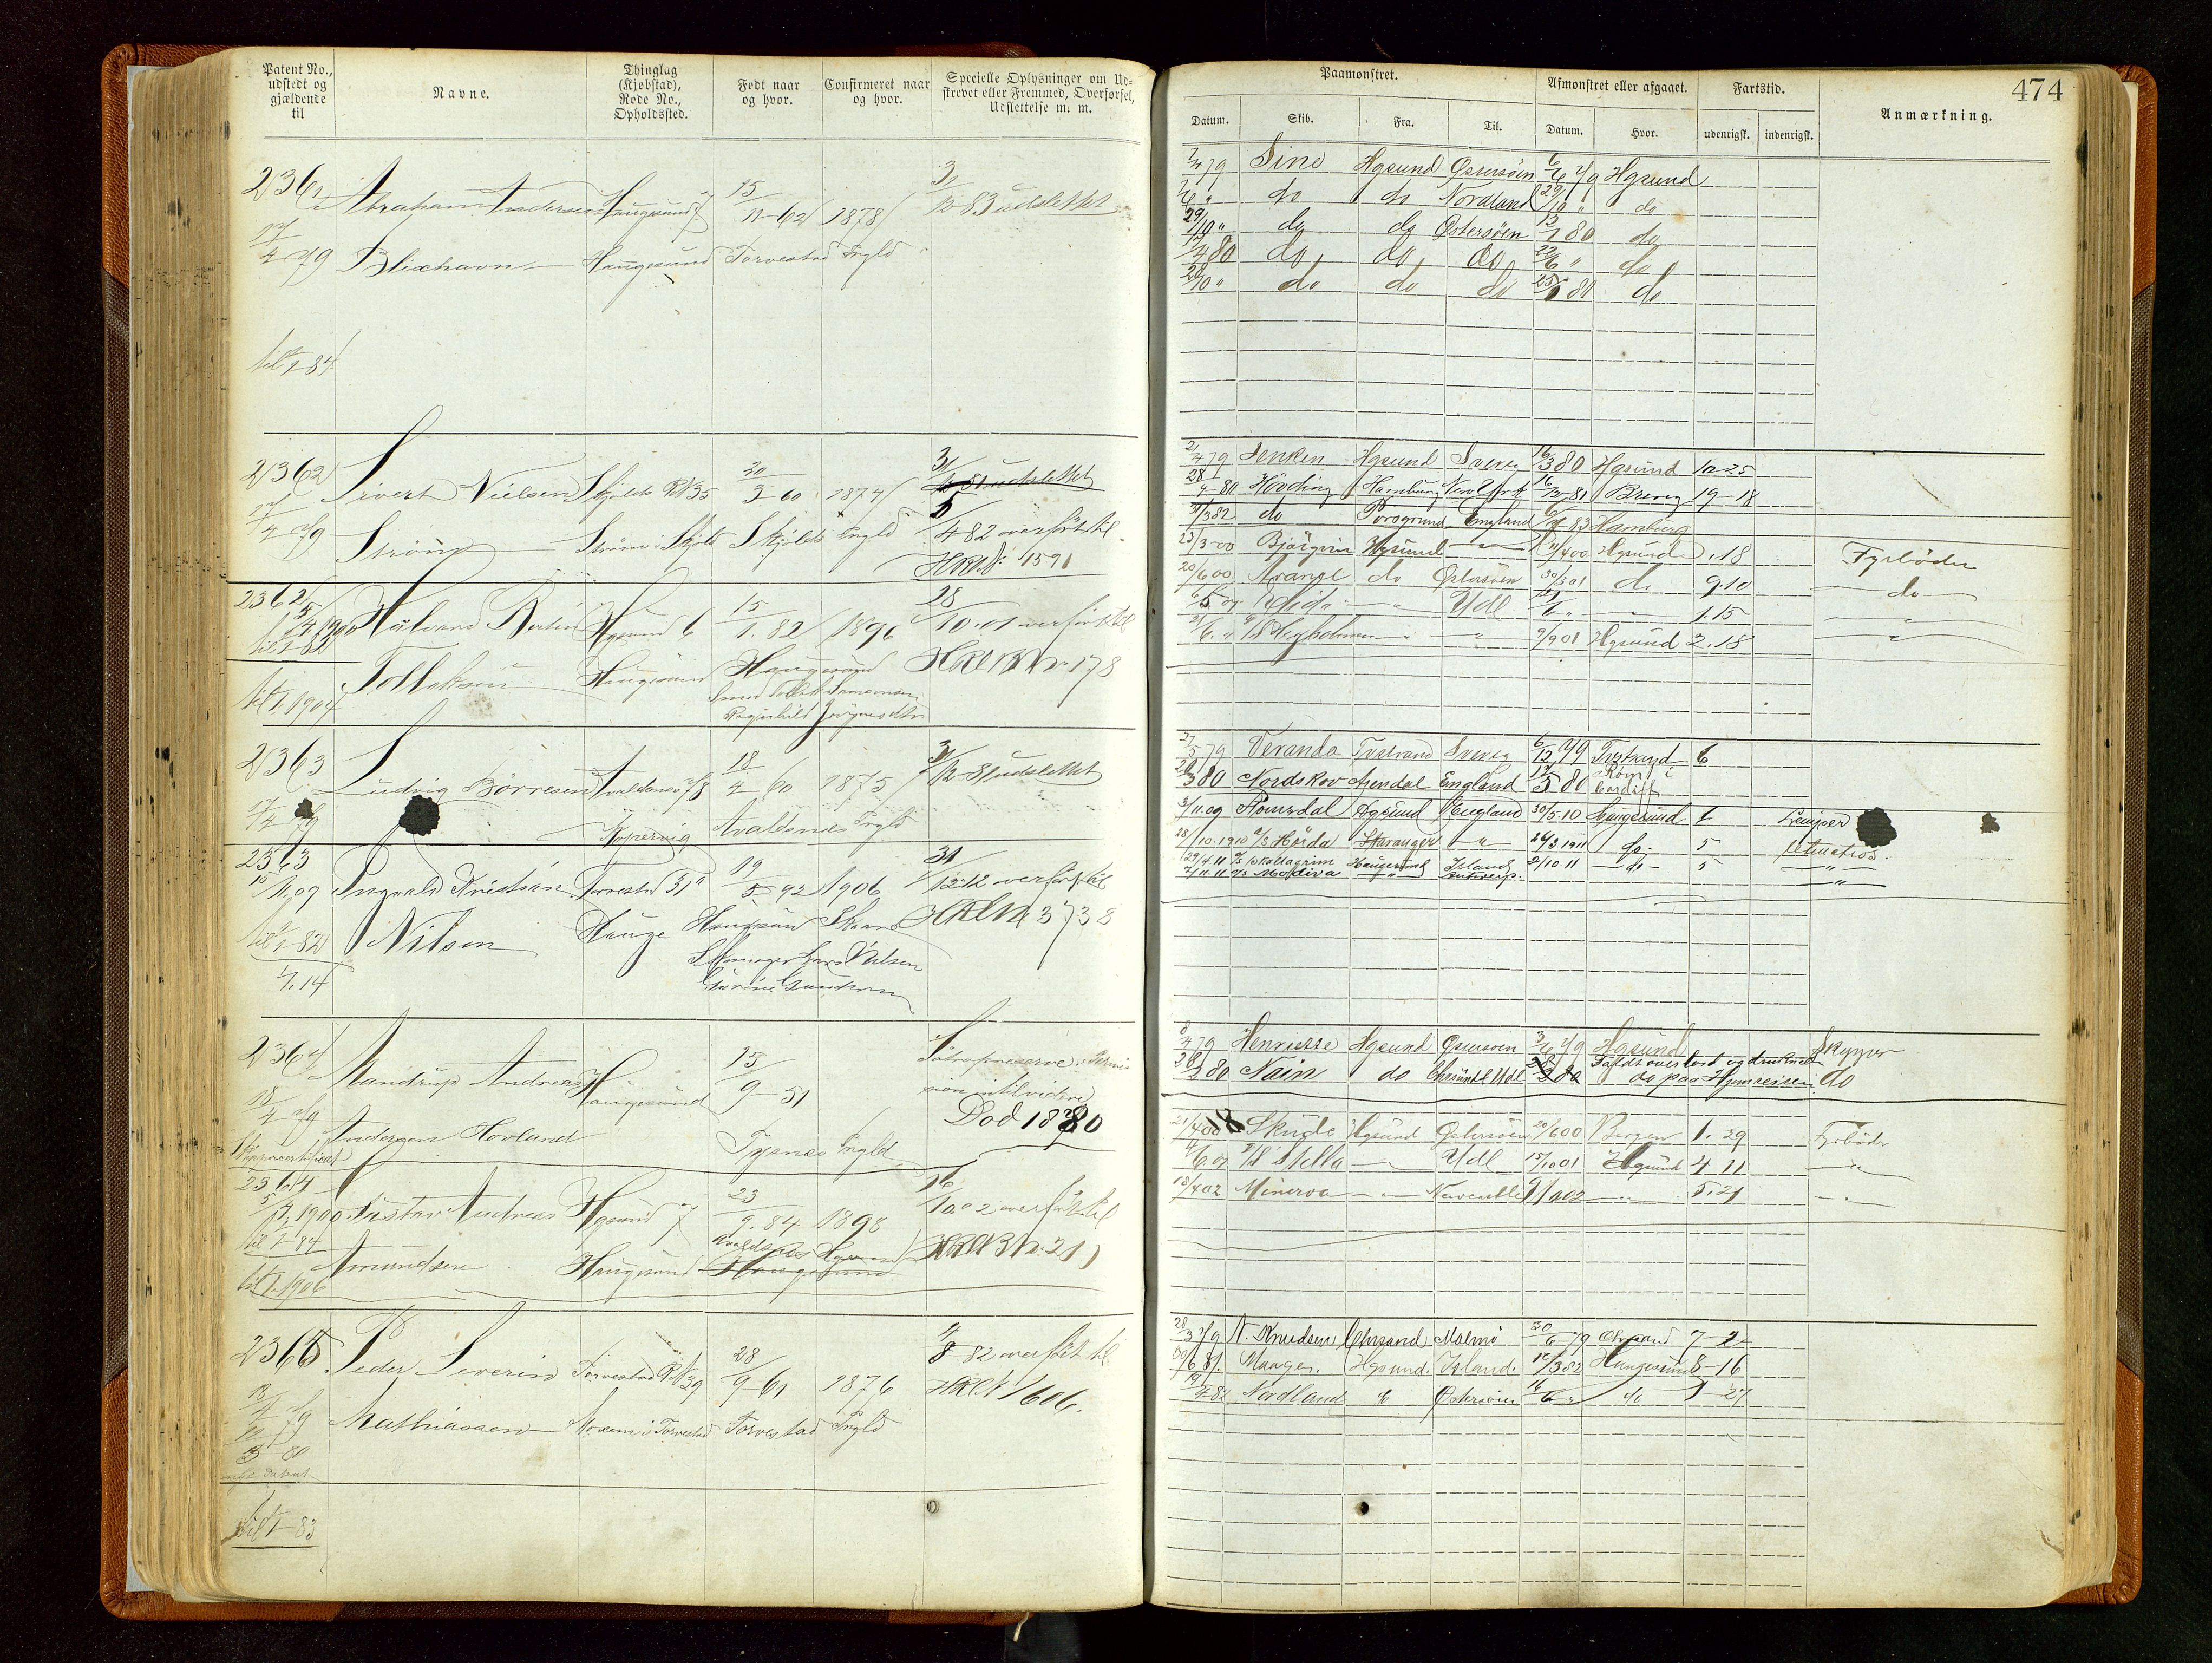 Patent No., udstedt og gjældende til
Navne.
Thinglag (Kjøbstad), Rode No., Opholdssted.
Født naar og hvor.
Confirmeret naar og hvor.
Specielle Oplysninger om Udskrevet eller Fremmed, Overførsel, Udslettelse m. m.
2361 Abraham Andersen Haugesund 7 15/11-62 1878 3/12-83 udslettet
17/4 79 Blixhavn Haugesund Torvestad Ingld
til 1/1-84
2362 Sivert Nielsen Skjolds RN 35 20/3 60 1874 31/12 81 udslettet
17/4 79 Strøm Strøm i Skjold Skjolds Ingld 5/4 82 overført til
HRN: 1591
2362 Halvard Bertin Hgsund 6 15/1.82 1896 28/10.01 overført til
5/4 1900
Tollaksen Haugesund Haugesund HRN B Nr 178
til 1/1 1904
2363 Ludvig Børresen Avaldsnes 78 18/4 60 1875 31/12-81 udslettet
17/4 79 Kopervig Avaldsnes Ingld
2363 Ingvald Kristian Torvestad 31 19/5 92 1906 31/12 12 overført til
Nilsen Hauge Haugesund Skaare HRN 3738
til 1/1 82
1/1.14
2364 Mandrup Andreas Haugesund 15/9-51
18/4 79 Andersen Hovland Tysnes Ingld Død 1880
Skippercertificat
2364 Gustav Andreas Hgsund 7 23/9.84 1898 16/10 02 overført til
5/4 1900
til 1/1 84 Amundsen Haugesund Haugesund HRN B Nr: 211
til 1/1.1906
2365 Peder Severin Torvestad RN 39 28/9-61 1876 4/8 82 overført til
HRN 1606.
18/4 79 Mathiassen Torvestad Torvestad Ingld
til 1/1-83
474
Paamønstret.
Afmønstret eller afgaaet.
Fartstid.
Anmærkning.
Datum. Skib. Fra. Til. Datum. Hvor. udenrigsk. indenrigsk.
7/4 79 Sine Hgsund Østersøen 6/6 79 Hgsund
7/6 " do do Nordland 29/10 " do
29/10 " do do Østersøen 12/1 80 do
12/4 80 do do do 22/6 " do
28/10 " do do do 25/1 81 do
2/4 79 Senken Hgsund Sverig 16/3 80 Hgsund 10 25
28/4-80 Høvding Hamburg New York 16/12 81 Brevig 19-18
31/3 82 do Porsgrund England 83 Hamburg
23/3-00 Bjørgvin Hgsund " 11/4 00 Hgsund .18 Fyrbøder
20/6 00 Avance do Østersøen 30/3 01 do 9 10 do
6/5 01 " Udl 1.15 "
" 9/9 01 Hgsund 2.18 "
27/5 79 Veranda Tvestrand Sverig 6/12 79 Tvstrand 6
28/3 80 Nordskov Arendal England 17/5 80 Røm i Cardiff
3/11.09 Romsdal Hgsund England 30/5-10 Haugesund 6 Lemper
28/10.1910 D/S Hørda Stavanger " 26/3 1911 do 5 Matros
29/4.11 D/S Skallagrim Haugesund Island 2/10 11 do 5 "
2/11.11 D/S Mardiva " Antwerp. "
8/4 79 Henriette Hgsund Østersøen 3/6 79 Hgsund Skipper
28/2 80 Nain do Chrsund & Udl 80 Faldt overbord og druknede
do paa Hjemreisen do
21/4 00 Skude Hgsund Østersøen 20/6 00 Bergen 1. 29 Fyrbøder
6 01 D/S Stella " Udl 15/10 01 Hgsund 4 11 "
18/4 02 Minerva " Newcastle 9/10 02 " 5.21 "
28/3 79 N. Knudsen Chrsand Malmö 30/6-79 Chrsand 7-2
30/6 81. Maagen. Hgsund. Island. 12/3 82 Haugesund 8-16
19/4 82 Nordland do Østersøen 16/6 " do 1 27